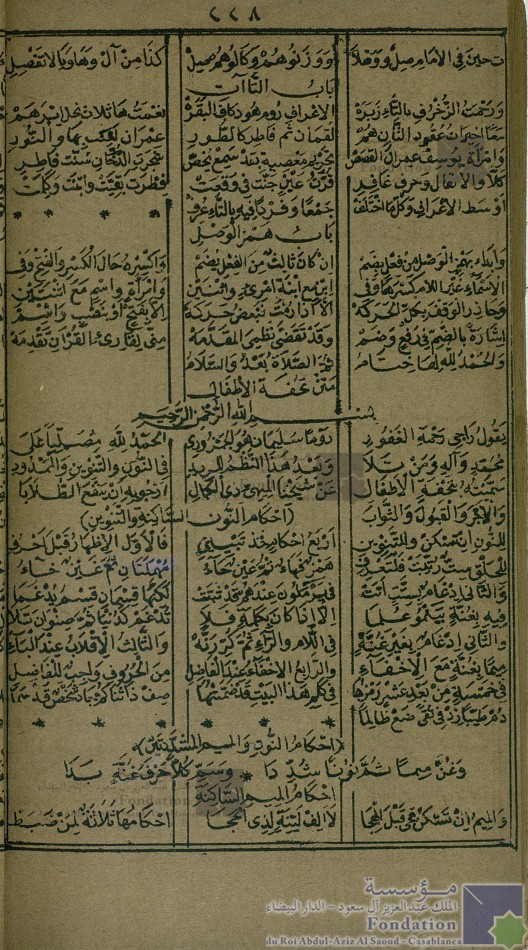 ٢٢٨
ت حين في الامام صل ووهلا ووزنوهم وكالوهم صل كذا من آل وها ويا لا تفصل
باب التاآت
ورحمت الزخرف بالتاء زبره الاعراف روم هود كاف البقره نعمتها ثلاث نحل ابرهم
معا اخيرات عقود الثان هم لقمان ثم فاطر كالطور عمران لعنت بها والنور
وامرأة يوسف عمران القصص تحريم معصية بقد سمع يخص شجرت الدخان سنت فاطر
كلا والانفال وحرف غافر قرت عين جنت في وقعت فطرت بقيت وابنت وكلمت
اوسط الاعراف وكل ما اختلف جمعا وفردا فيه بالتاء عرف * * * *
باب همز الوصل
وابدأ بهمز الوصل من فعل بضم ان كان ثالث من الفعل يضم واكسره حال الكسر والفتح وفي
الاسماء غير اللام كسرها وفي ابن مع ابنة امرئ واثنين وامرأة واسم مع اثنتين
وحاذر الوقف بكل الحركه الا اذا رمت فبعض حركه الا بفتح او بنصب واشم
اشارة بالضم في رفع وضم وقد تقضى نظمي المقدمه مني لقارئ القرآن تقدمه
والحمد لله لها ختام ثم الصلاة بعد والسلام
متن تحفة الاطفال
بسم الله الرحمن الرحيم
يقول راجي رحمة الغفور دوما سليمان هو الجمزوري الحمد لله مصليا على
محمد وآله ومن تلا وبعد هذا النظم للمريد في النون والتنوين والمدود
سميته بتحفة الاطفال عن شيخنا الميهي ذي الكمال ارجو به ان ينفع الطلابا
والاجر والقبول والثوابا (احكام النون الساكنة والتنوين)
للنون ان تسكن وللتنوين اربع احكام فخذ تبييني فالاول الاظهار قبل احرف
للحلق ست رتبت فلتعرف همز فهاء ثم عين حاء مهملتان ثم غين خاء
والثاني ادغام بستة اتت في يرملون عندهم قد ثبتت لكنها قسمان قسم يدغما
فيه بغنة بينمو علما الا اذا كان بكلمة فلا تدغم كدنيا ثم صنوان تلا
والثاني ادغام بغير غنه في اللام والرا ثم كررنه والثالث الاقلاب عند الباء
ميما بغنة مع الاخفاء والرابع الاخفاء عند الفاضل من الحروف واجب للفاضل
في خمسة من بعد عشر رمزها في كلم هذا البيت قد ضمنتها صف ذا ثنا كم جاد شخص قد سما
دم طيبا زد في تقى ضع ظالما * * * * *
(احكام النون والميم المشددتين)
وغن ميما ثم نونا شددا * وسم كلا حرف غنة بدا
احكام الميم الساكنة
والميم ان تسكن تجي قبل الهجا لا الف لينة لذي الحجا احكامها ثلاثة لمن ضبط
مؤسسة
الملك عبد العزيز آل سعود - الدار البيضاء
Fondation
du Roi Abdul-Aziz Al Saoud - Casablanca